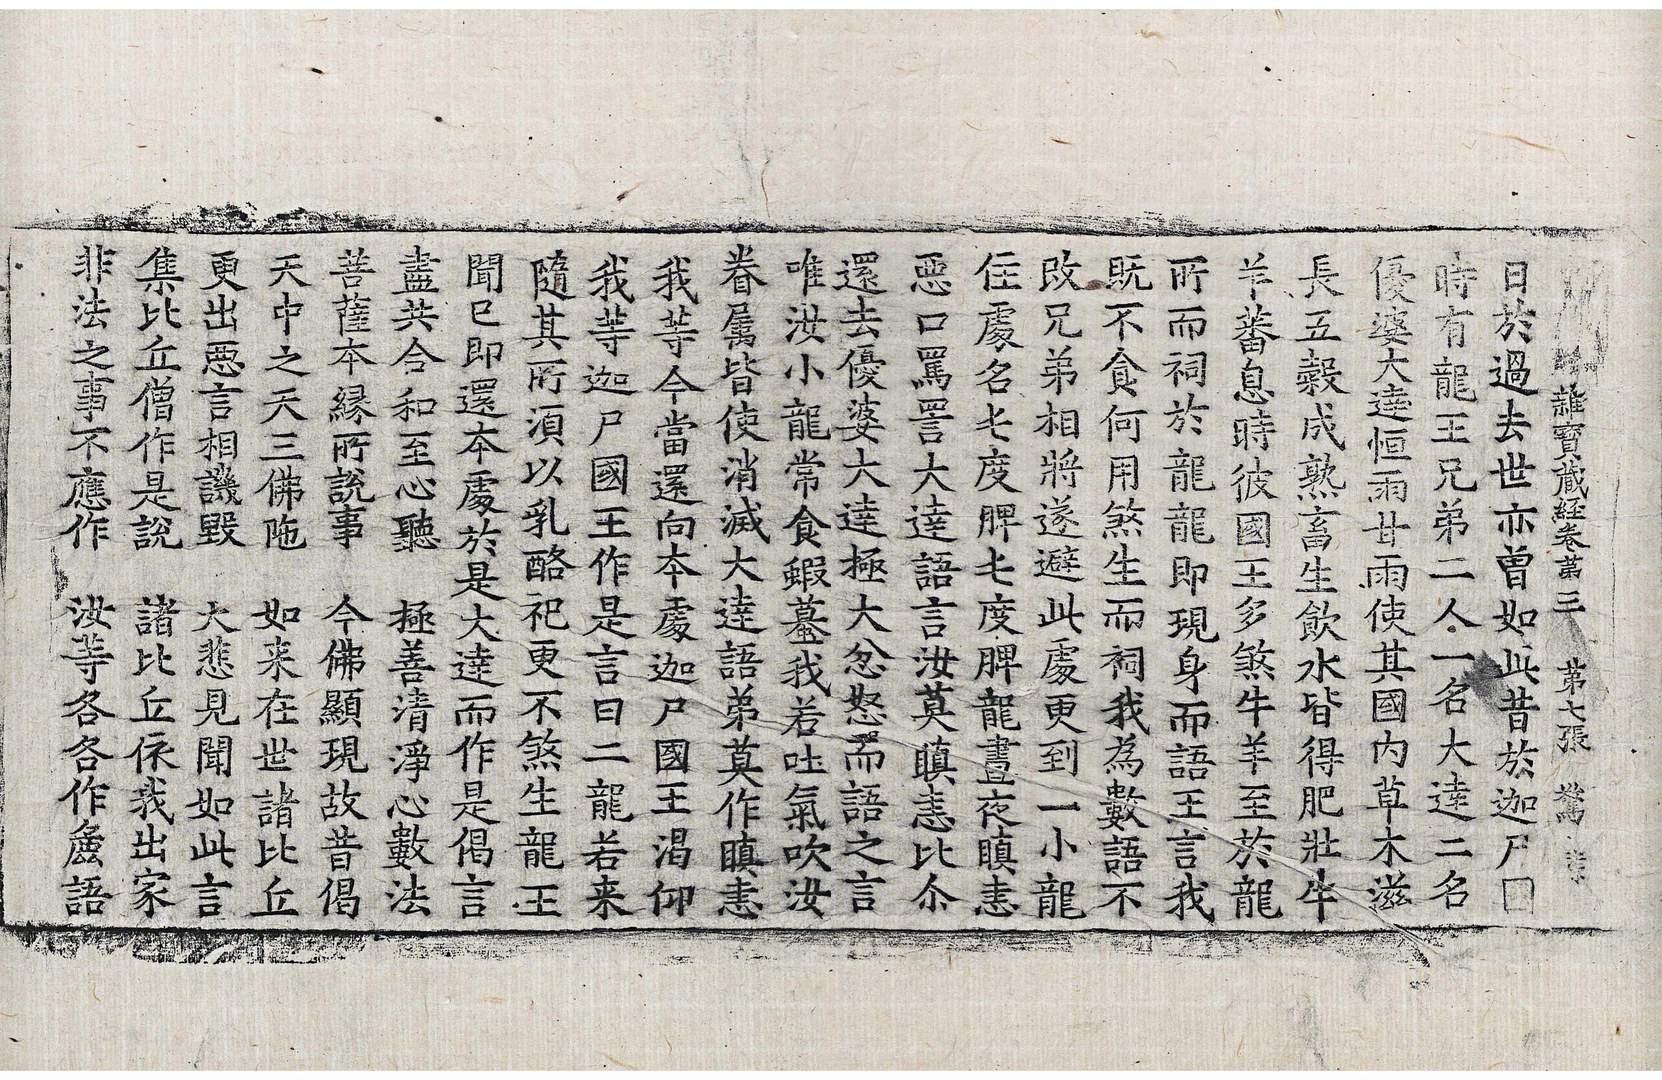 雜寶蔵経卷第三 第七張
日於過去世亦曾如此昔於迦尸囗
時有龍王兄弟二人一名大達二名
優婆大達恒雨甘雨使其國内草木滋
長五穀成熟畜生飲水皆得肥壯牛
羊蕃息時彼國王多煞牛羊至於龍
所而祠於龍龍即現身而語王言我
既不食何用煞生而祠我為數語不
改兄弟相將遂避此處更到一小龍
住處名七度脾七度脾龍晝夜瞋恚
惡口罵詈大達語言汝莫瞋恚比尒
還去優婆大達極大忿怒而語之言
唯汝小龍常食蝦蟇我若吐氣吹汝
眷属皆使消滅大達語弟莫作瞋恚
我等今當還向本處迦尸國王渴仰
我等迦尸國王作是言曰二龍若来
隨其所湏以乳酪祀更不煞生龍王
聞已即還本處於是大達而作是偈言
盡共合和至心聽 極善清淨心數法
菩薩本縁所說事 今佛顯現故昔偈
天中之天三佛陁 如来在世諸比丘
更出惡言相譏毀 大悲見聞如此言
集比丘僧作是說 諸比丘依我出家
非法之事不應作 汝等各各作麁語